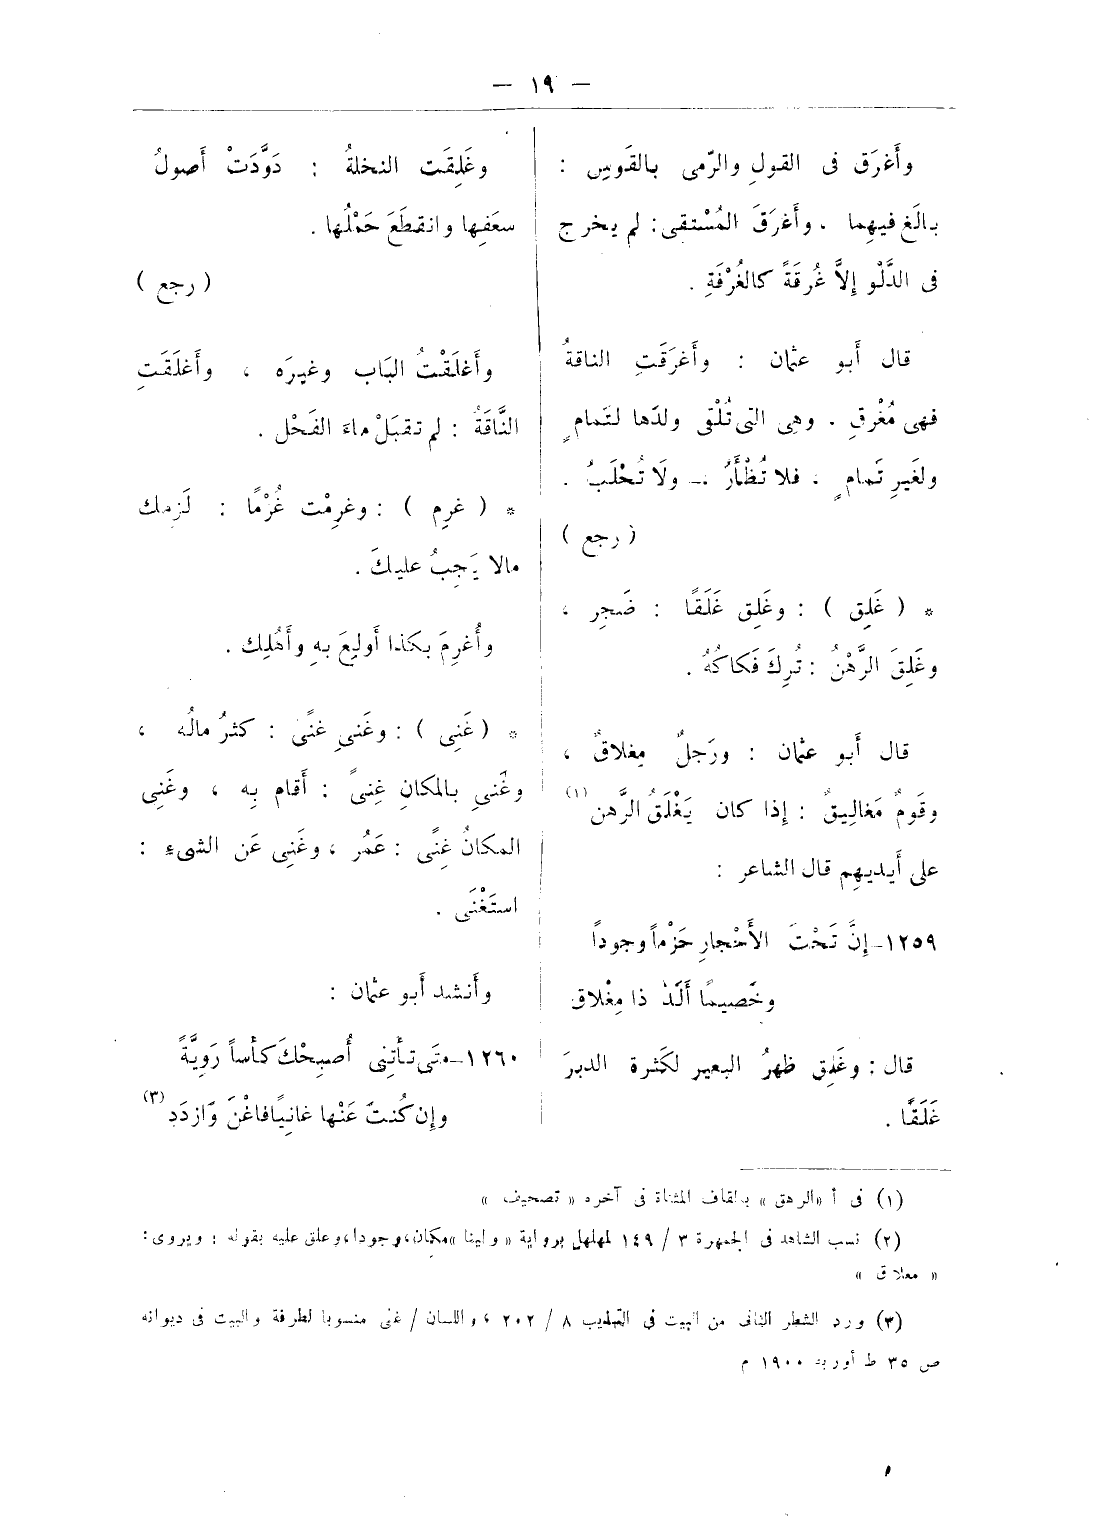 — ١٩ —
وأَغرَق فى القولِ والرّمى بالقَوسِ :
بالَغ فيهِما . وأَغرَقَ المُسْتقِى : لم يخرج
فى الدَّلْو إِلاَّ غُرقَةً كالغُرْفَةِ .
قال أَبو عثمان : وأَغرَقَتِ الناقةُ
فهى مُغْرِق . وهِى التى تُلْقى ولدَها لتَمامٍ
ولغَيرِ تَمامٍ ، فلا تُظْأَرُ ، ولَا تُحْلَبُ .
( رجع )
* ( غَلِق ) : وغَلِق غَلَقًا : ضَجِر ،
وغَلِقَ الرَّهْنُ : تُرِكَ فَكاكُهُ .
قال أَبو عثمان : ورَجلٌ مِغلاقٌ ،
وقَومٌ مَغالِيقٌ : إِذا كان يَغْلَقُ الرَّهن (١)
على أَيديهِم قال الشاعر :
١٢٥٩ – إِنَّ تَحْتَ الأَحْجارِ حَزْماً وجوداً
وخَصِيمًا أَلَدَّ ذا مِغْلاق
قال : وغَلِق ظهرُ البعير لكَثرة الدبرَ
غَلَقًا .
وغَلِقَت النخلةُ : دَوَّدَتْ أَصولُ
سعَفِها وانقطَعَ حَمْلُها .
( رجع )
وأَغلَقْتُ البَاب وغيرَه ، وأَغلَقَتِ
النَّاقَةُ : لم تقبَلْ ماءَ الفَحْل .
* ( غرِم ) : وغرِمْت غُرْمًا : لَزِمك
مالا يَجِبُ عليكَ .
وأُغرِمَ بكذا أُولِعَ بهِ وأُهْلِك .
* ( غَنِى ) : وغَنىِ غنًى : كثرُ مالُه ،
وغَنىِ بالمكانِ غِنىً : أَقام بِه ، وغَنِى
المكانُ غِنًى : عَمُر ، وغَنِى عَن الشىءِ :
استَغْنَى .
وأَنشد أَبو عثمان :
١٢٦٠ – متَى تأتِنِى أُصبِحْكَ كأساً رَوِيَّةً
وإِن كُنتَ عَنْها غانِيًا فاغْنَ وَازدَدِ (٣)
(١) فى أ « الرهق » بالقاف المثناة فى آخره « تصحيف »
(٢) نسب الشاهد فى الجمهرة ٣ / ١٤٩ لمهلهل برواية « ولينا » مكان، وجودا، وعلق عليه بقوله : ويروى :
« معلاق »
(٣) ورد الشطر الثانى من البيت فى التهذيب ٨ / ٢٠٢ ، واللسان / غنى منسوبا لطرفة والبيت فى ديوانه
ص ٣٥ ط أوربه ١٩٠٠ م